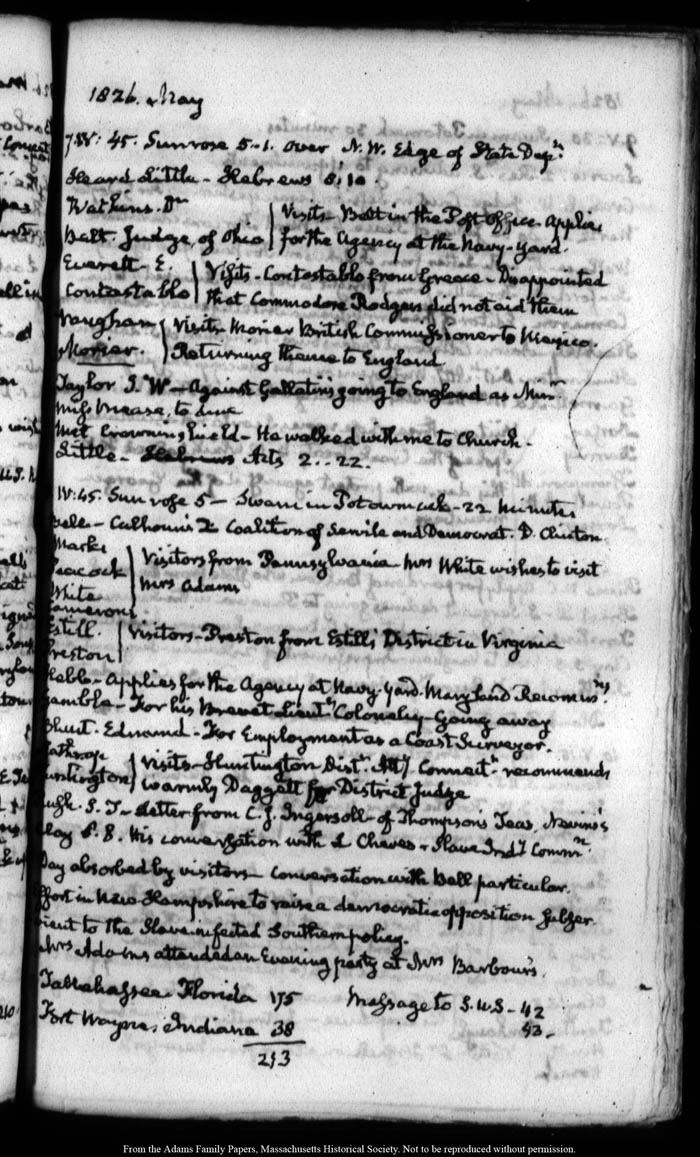 1826. May
7. IV: 45. Sun rose 5-1. over N.W. Edge of State Dept.
Heard Little - Hebrews 8:10.
Watkins. Dr
Batt. Judge, of Ohio
Visits - Batt in the Post Office. Applies
for the Agency at the Navy-Yard.
Everett - E.
Contostablo
Visits - Contostablo from Greece - Disappointed
that Commodore Rodgers did not aid them
Vaughan
Morier.
Visits Morier British Commissioner to Mexico.
Returning thence to England
Taylor J. W - Against Gallatin's going to England as Minr.
Miss Mease, to dine
Met Crowninshield - He walked with me to Church.
Little - Hebrews Acts 2..22.
IV:45. Sun rose 5 - Swam in Potowmack - 22 minutes
Bell - Calhoun's Coalition of Servile and Democrat. D. Clinton
Marks
Peacock
White
Visitors from Pennsylvania - Mrs White wishes to visit
Mrs Adams
Cameron.
Estill.
Preston
Visitors - Preston from Estill's District in Virginia
Applies for the Agency at Navy-Yard. Maryland
Gamble - For his Brevet Lieutt. Colonelcy - Going away
Blunt. Edmund - For Employment as a Coast Surveyor.
Lathrop
Huntington
Visits - Huntington Dist. Atty Connect. recommends
warmly Daggett for District Judge
Pugh. S. J - Letter from C. J. Ingersoll - of Thompson's Teas, Nevins's
Clay His conversation with L Cheves
Day absorbed by visitors - Conversation with Bell particular.
Effort in New Hampshire to raise a democratic opposition
to the Slave infected Southern policy.
Mrs Adams attended an Evening party at Mrs Barbour's.
Tallahassee Florida 175 Message to S.U.S - 42
Fort Wayne. Indiana 38 43.
213
From the Adams Family Papers, Massachusetts Historical Society. Not to be reproduced without permission.